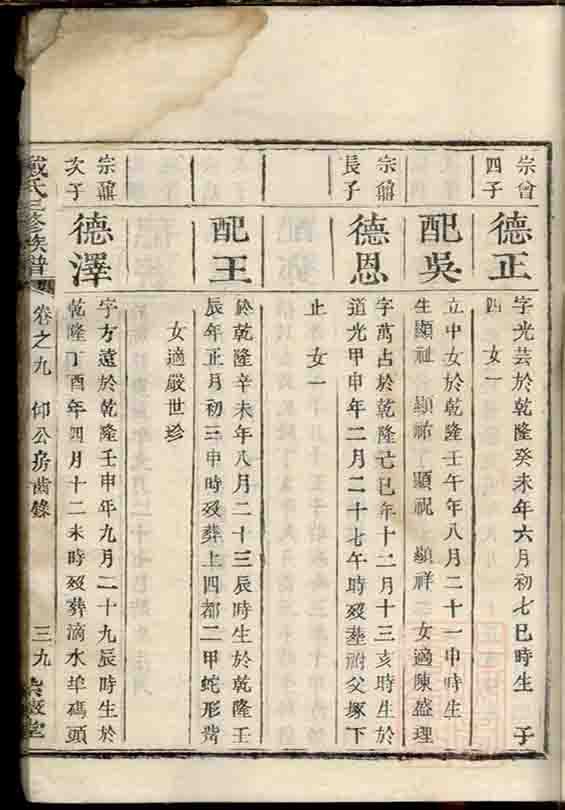 宗曾
四子
德正
字光芸於乾隆癸未年六月初七巳時生　子
四　女一
配吳
立中女於乾隆壬午年八月二十一申時生
生顯祉　顯祐　顯祝　顯祥　女適陳盛理
宗鼐
長子
德恩
字萬占於乾隆己巳年十二月十三亥時生於
道光甲申年二月二十七午時歿葬祔父塚下
止　女一
配王
於乾隆辛未年八月二十三辰時生於乾隆壬
辰年正月初三申時歿葬上四都二甲蛇形
女適嚴世珍
宗鼐
次子
德澤
字方遠於乾隆壬申年九月二十九辰時生於
乾隆丁酉年四月十二未時歿葬滴水埠碼頭
戴氏三修族譜
卷之九　仰公房齒錄
三九
堂